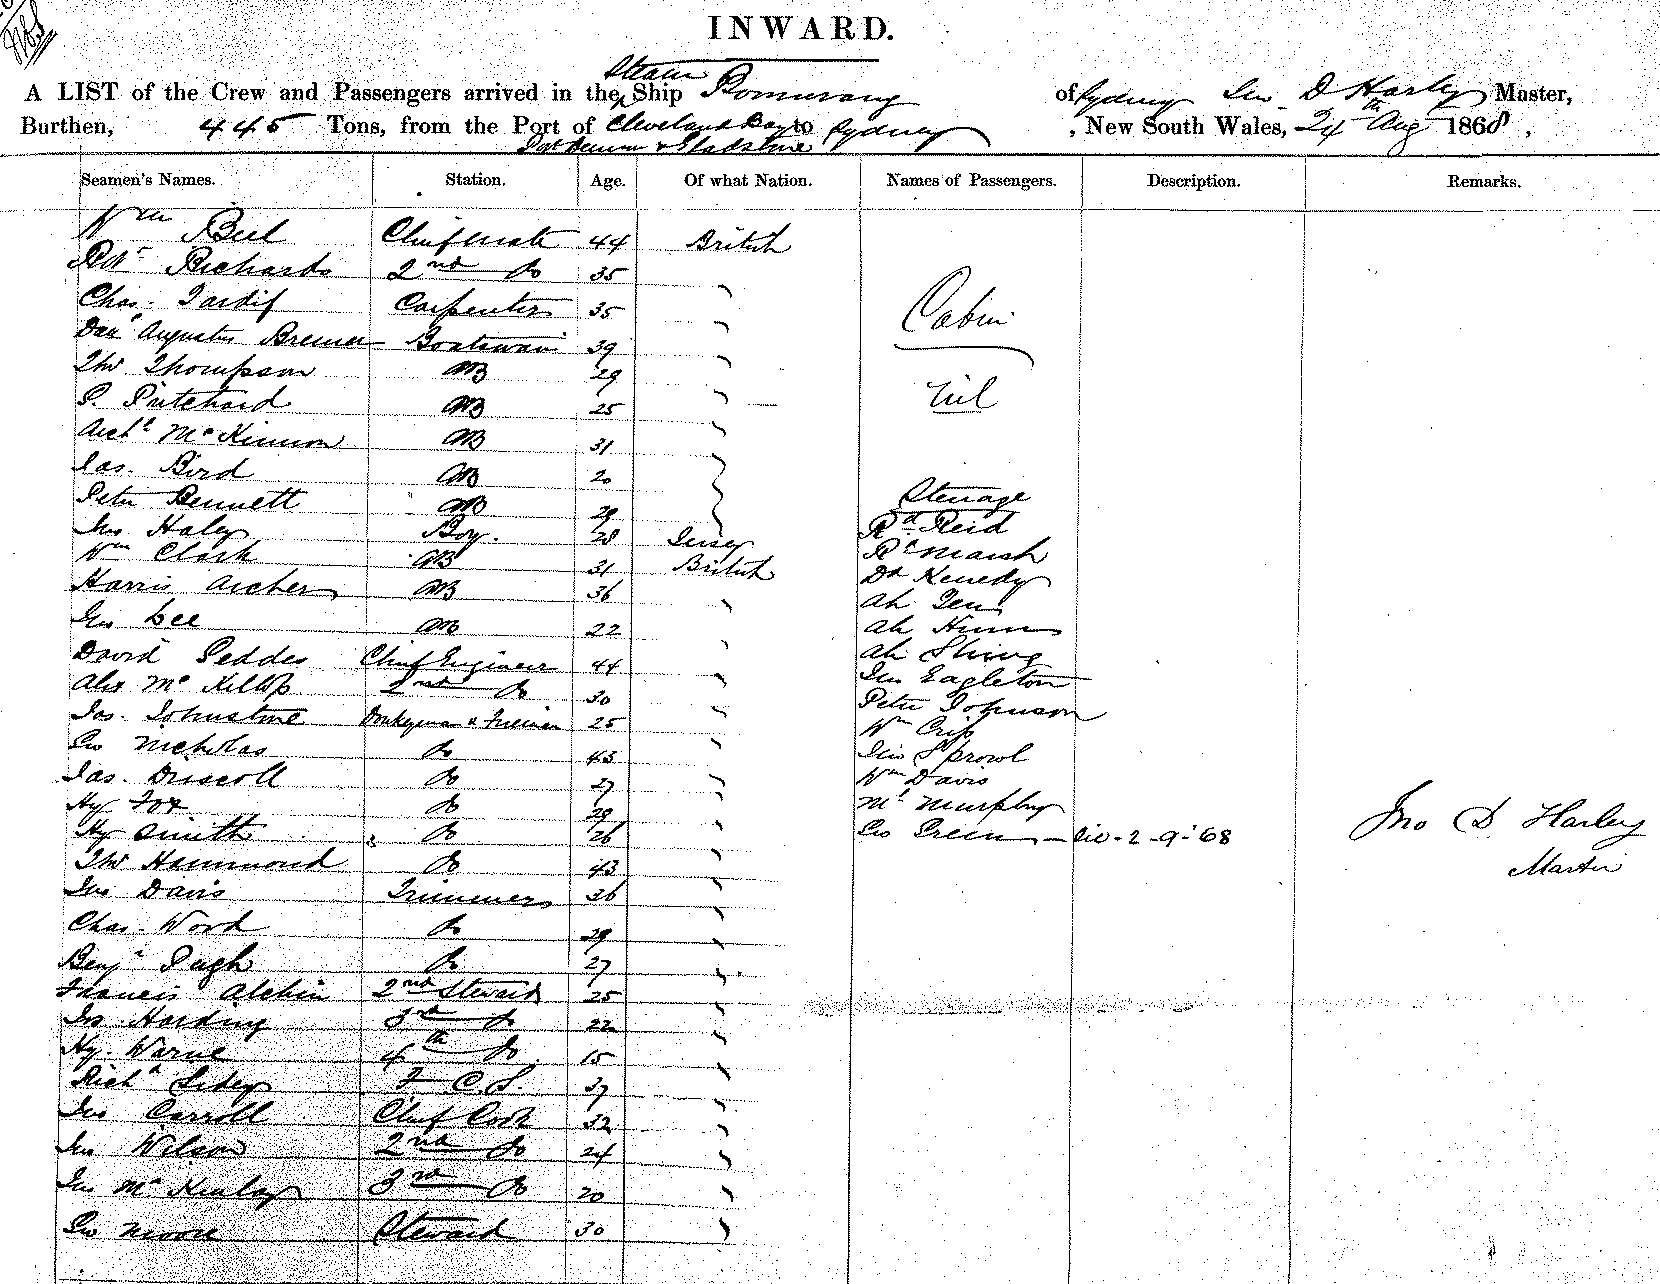 INWARD.
A LIST of the Crew and Passengers arrived in the Steam Ship Bomerang of Sydney Jno D Harley Master,
Burthen, 445 Tons, from the Port of Cleveland Bay to Sydney, New South Wales, 24th Aug 1868,
Gladstone
Seamen's Names. Station. Age. Of what Nation. Names of Passengers. Description. Remarks.
Wm Bell Chief Mate 44 British
Richards 2nd Do 35 "
Chas. Tardif Carpenter 35 "
Danl Augustus Bremer Boatswain 39 "
Thos Thompson AB 29 "
P. Pritchard AB 25 "
Archd McKinnon AB 31 "
Jas. Bird AB 20
Peter Bennett AB 29
Jno Haley Boy. 28 Jersey
Wm Clark AB 31 British
Harris Archer AB 36 "
Jno Lee AB 22 "
David Geddes Chief Engineer 44 "
Alex McKillop 2nd Do 30 "
Jas. Johnstone Donkeyman & Fireman 25 "
Geo Nicholas Do 43 "
Jas. Driscoll Do 27 "
Hy Fox Do 29 "
Hy Smith Do 26 "
Thos Hammond Do 43 "
Jno Davis Trimmers 26 "
Chas. Wood Do 29 "
Benjn Pugh Do 27 "
Francis Alchin 2nd Steward 25 "
Harding 3rd Do 22 "
Hy. Warne 4th Do 15 "
Richd F C.S. 37 "
Jno Carroll Chief Cook 32 "
Jno Wilson 2nd Do 24 "
Jno 3rd Do 20 "
Geo Moore Steward 30 "
Cabin
Nil
Steerage
Rd Reid
Rd Marsh
Dd Kenedy
Ah
Ah
Ah
Jno Eagleton
Peter Johnson
Wm Crip
Jno Sprowl
Wm Davis
Murphy
Geo Green - 2-9-'68
Jno D. Harley
Master